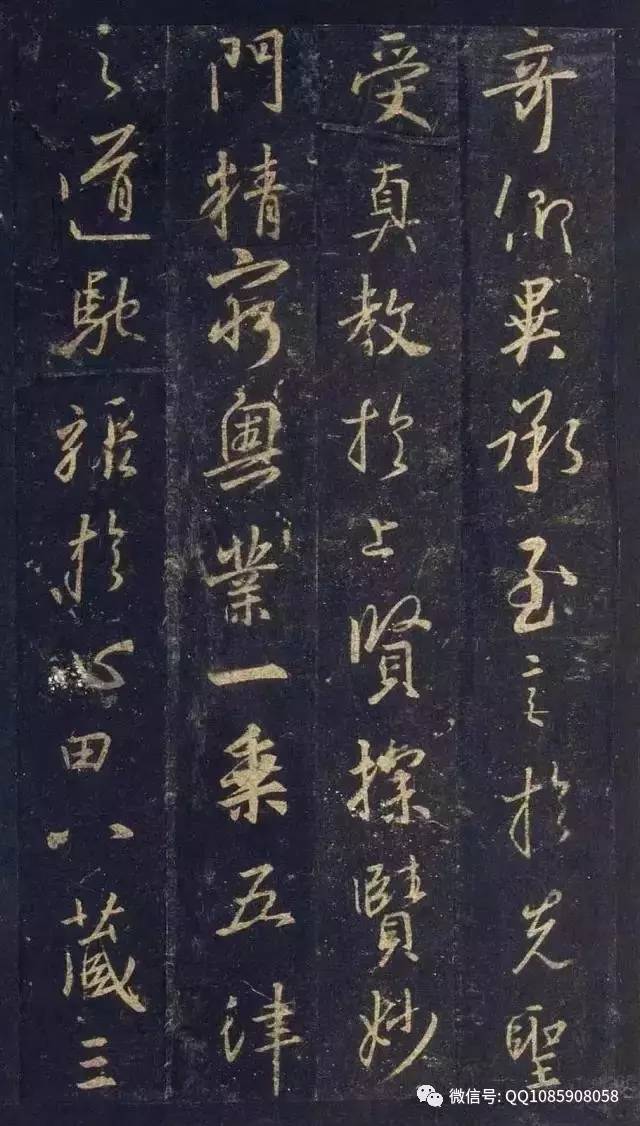 奇仰異承至言於先聖
受真教於上賢探賾妙
門精窮奧業一乘五律
之道馳驟於心田八藏三
微信号: QQ1085908058